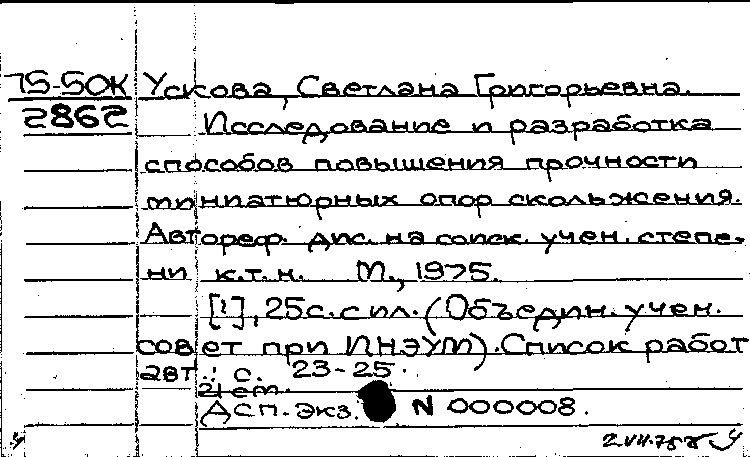 75-50К Ускова, Светлана Григорьевна.
2862 Исследование и разработка
способов повышения прочности
миниатюрных опор скольжения.
Автореф. дис. на соиск. учен. степе-
ни к.т.н. М., 1975.
[1], 25с. с ил. (Объедин. учен.
совет при ИНЭУМ). Список работ
авт.: с. 23-25.
21 ст.
Дсп. Экз. N 000008.
2.VII.75г